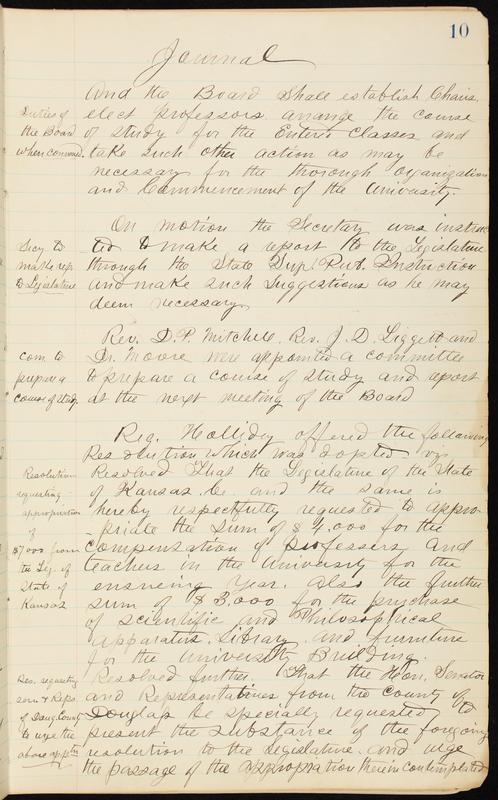 10
Journal
And the Board shall establish Chairs,
Duties of
the Board
when convened
elect professors arrange the course
of study for the Enter'g Classes and
take such other action as may be
necessary for the thorough organization
and Commencement of the University.
On motion the Secretary was instruc
Secy. to
make rep.
to Legislature
ted to make a report to the Legislature
through the State Sup. Pub. Instruction
and make such Suggestions as he may
deem necessary
Rev. D. P. Mitchell, Rev. J. D. Liggett and
Com to
prepare a
course of study
Dr. Moore were appointed a committee
to prepare a course of study and report
at the next meeting of the Board
Reg. Holliday offered the following
Resolution which was adopted viz.
Resolution
requesting
appropriation
of
$7000 from
the Leg. of
State of
Kansas
Resolved That the Legislature of the State
of Kansas be and the same is
hereby respectfully requested to appro-
priate the sum of $4,000 for the
Compensation of professors and
teachers in the University for the
ensueing year. Also the further
sum of $3,000 for the purchase
of scientific and Philosophical
apparatus, Library and furniture
for the University Building.
Res. requesting
sen. & Reps.
of Doug County
to urge the
above app'tn
Resolved further. That the Hon. Senator
and Representatives from the County of
Douglas be specially requested to
present the substance of the foregoing
resolution to the Legislature and urge
the passage of the appropriation therein contemplated